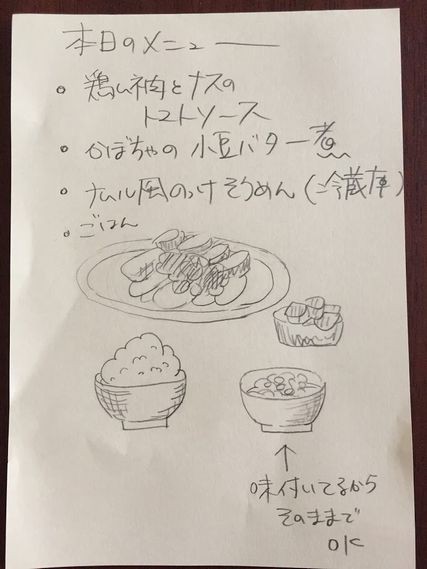 本日のメニュー
・鶏ムネ肉とナスの
トマトソース
・かぼちゃの小豆バター煮
・ナムル風のっけそうめん(冷蔵庫)
・ごはん
↑
味付いてるから
そのままで
OK